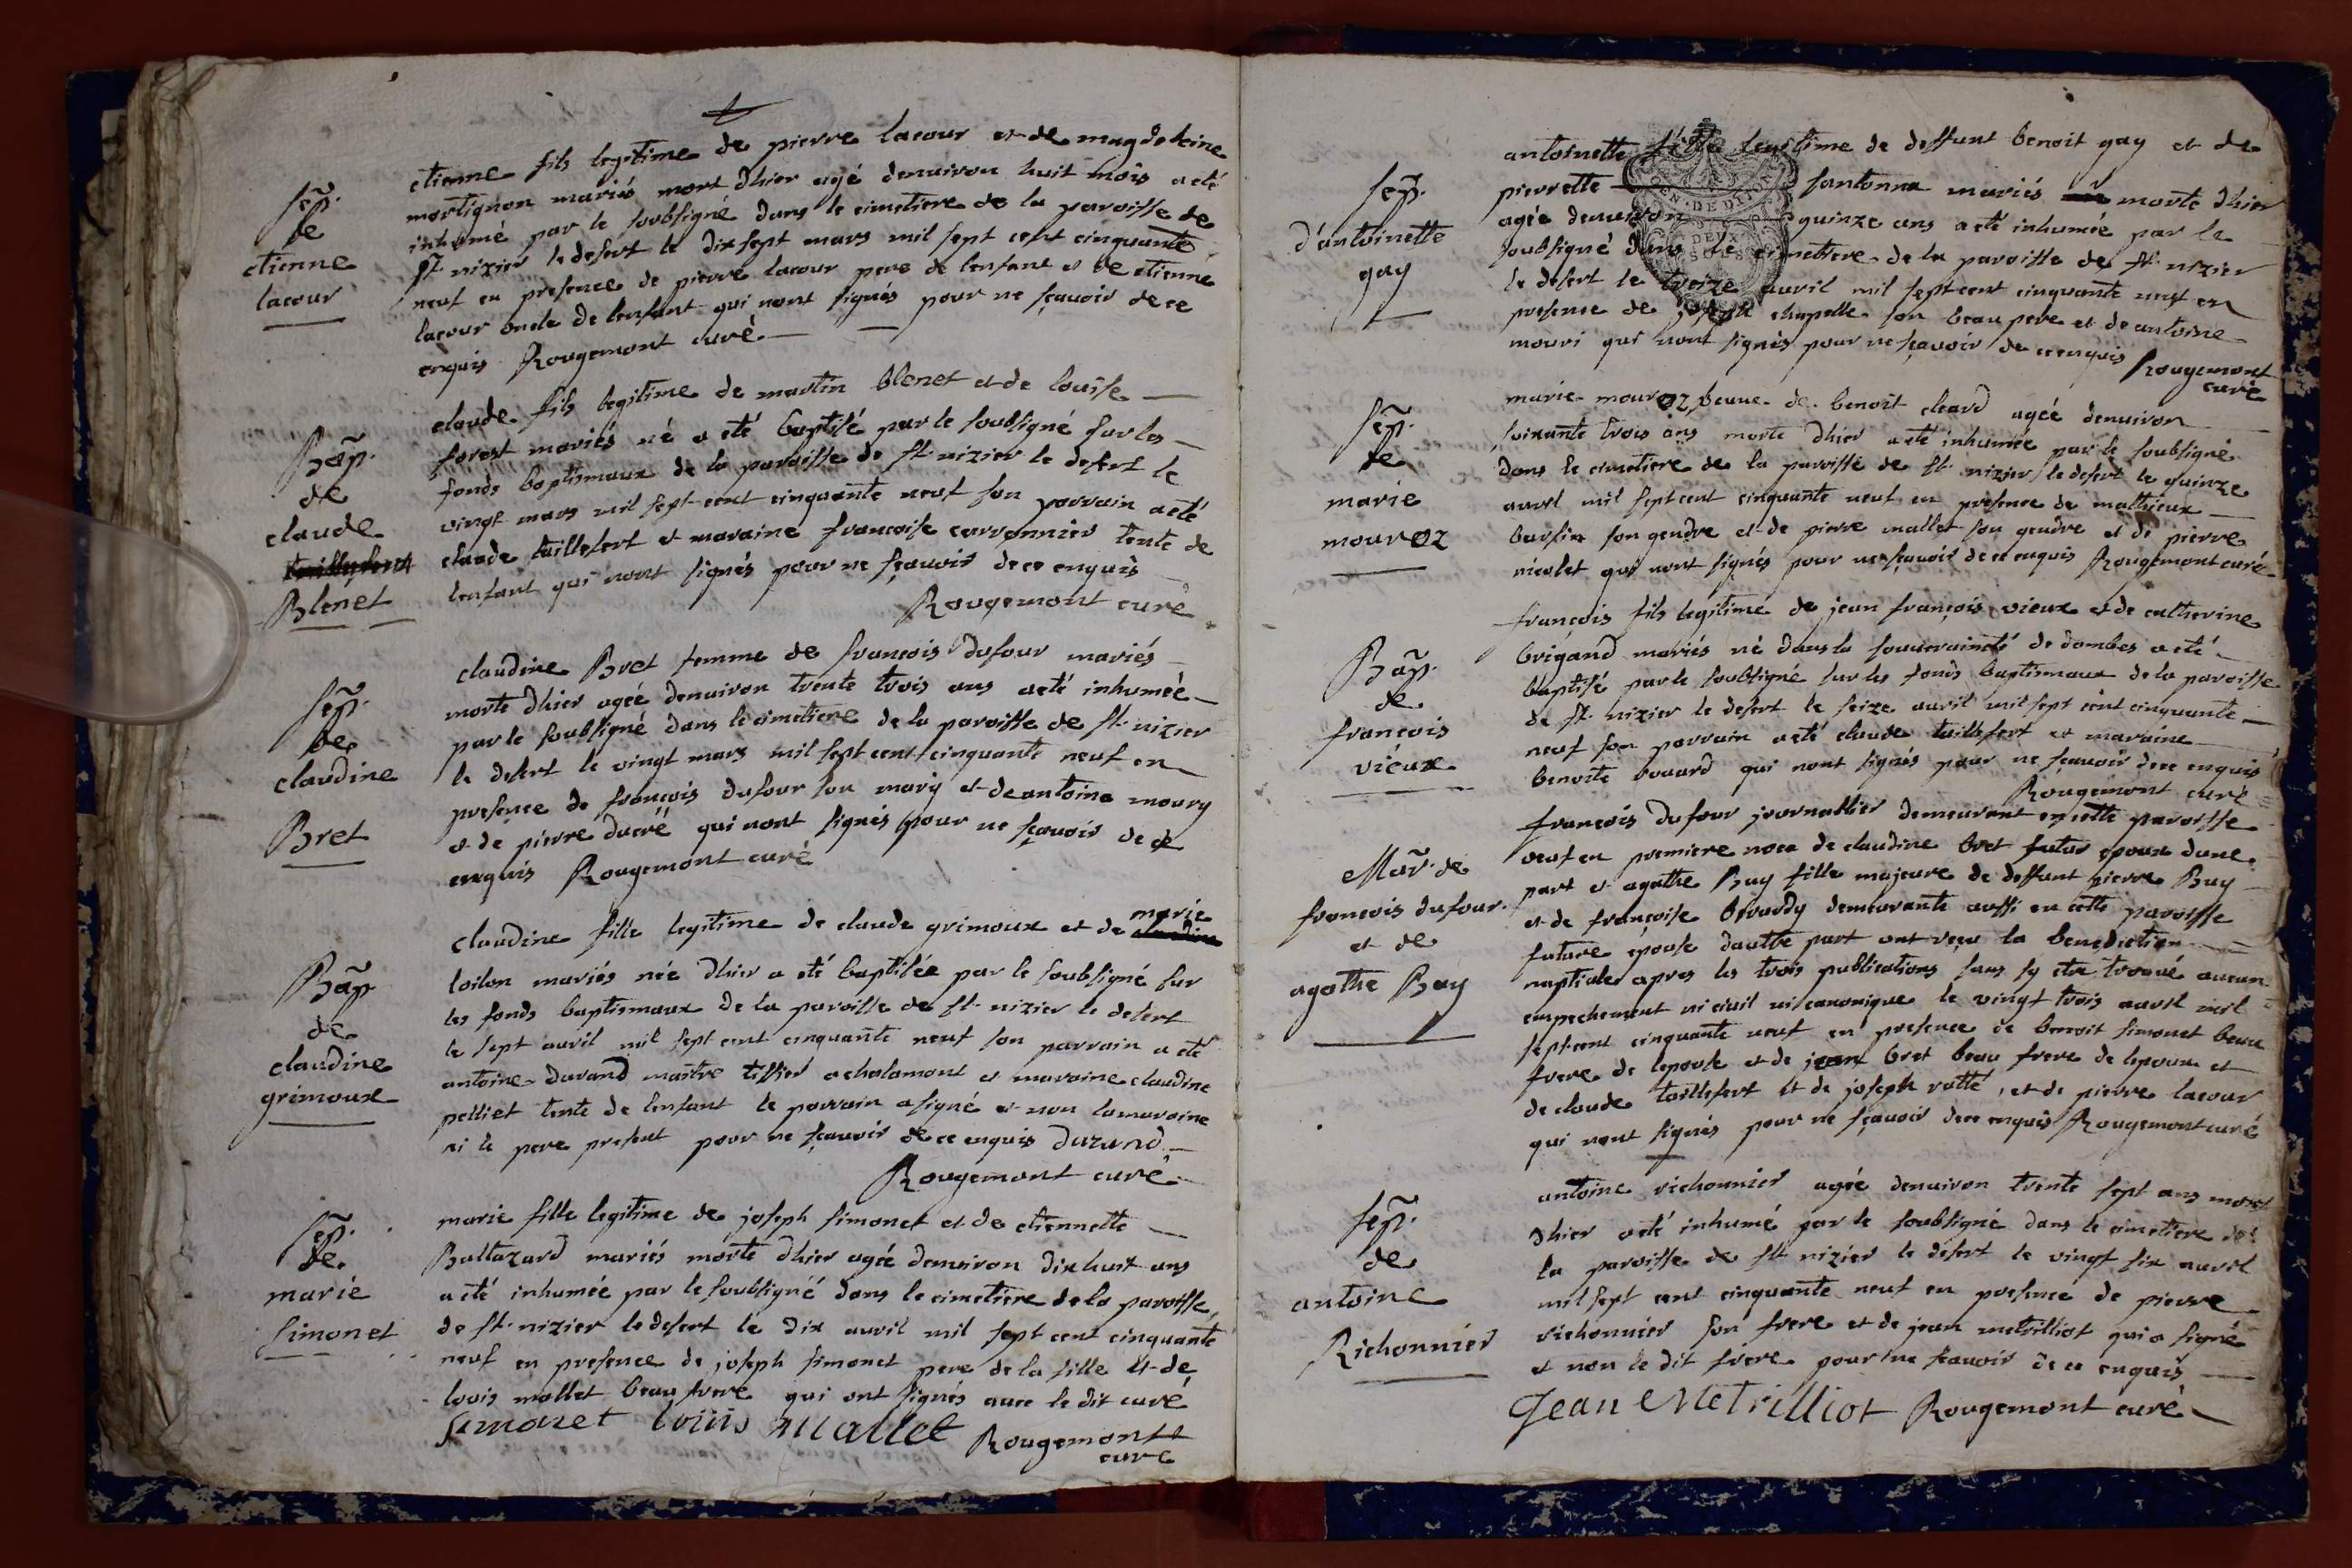 sep̃.
de
etienne
lacour
etienne fils legitime de pierre lacour et de magdeleine
mortignon mariés mort dhier agé denuiron huit mois a eté
inhumé par le soubsigné dans le cimetiere de la paroisse de
st. nizier le desert le dix sept mars mil sept cent cinquante
neuf en presence de pierre lacour pere de lenfant et de etienne
lacour oncle de lenfant qui nont signés pour ne sçauoir de ce
enquis Rougemont curé
Bap̃.
de
claude
Blenet
claude fils legitime de martin blenet et de louise
forest mariés né a eté baptisé par le soubsigné sur les
fonds baptismaux de la paroisse de st. nizier le desert le
vingt mars mil sept cent cinquante neuf son parrain a eté
claude taillefert et maraine francoise carronnier tente de
lenfant qui nont signés pour ne sçauoir de ce enquis
Rougemont curé
sep̃.
de
claudine
Bret
claudine Bret femme de francois dufour mariés
morte dhier agée denuiron trente trois ans a eté inhumée
par le soubsigné dans le cimetiere de la paroisse de st. nizier
le desert le vingt mars mil sept cent cinquante neuf en
presence de françois dufour son mary et de antoine moury
et de pierre ducré qui nont signés pour ne sçauoir de ce
enquis Rougemont curé
Bap̃.
de
claudine
grimoux
claudine fille legitime de claude grimoux et de marie
loilon mariés née dhier a eté baptisée par le soubsigné sur
les fonds baptismaux de la paroisse de st. nizier le desert
le sept auril mil sept cent cinquante neuf son parrain a eté
antoine durand maitre tissier a chalamont et maraine claudine
pelliet tente de lenfant le parrain a signé et non la maraine
ni le pere present pour ne sçauoir de ce enquis durand
Rougemont curé
sep̃.
de
marie
simonet
marie fille legitime de joseph simonet et de etiennette
Baltazard mariés morte dhier agée denuiron dix huit ans
a eté inhumée par le soubsigné dans le cimetiere de la paroisse
de st. nizier le desert le dix auril mil sept cent cinquante
neuf en presence de joseph simonet pere de la fille et de
louis mallet beau frere qui ont signés auec le dit curé
simonet louis mallet Rougemont
curé
sep̃.
d'antoinette
gay
antoinette fille legitime de deffunt benoit gay et de
pierrette fantonna mariés morte dhier
agée denuiron quinze ans a eté inhumée par le
soubsigné dans le cimetiere de la paroisse de st. nizier
le desert le treize auril mil sept cent cinquante neuf en
presence de joseph chapelle son beau pere et de antoine
mouri qui nont signés pour ne sçavoir de ce enquis Rougemont
curé
DEUX
SOLS
sep̃.
de
marie
mouroz
marie mouroz veuue de benoit cleard agée denuiron
soixante trois ans morte dhier a eté inhumée par le soubsigné
dans le cimetiere de la paroisse de st. nizier le desert le quinze
auril mil sept cent cinquante neuf en presence de mathieux
bursin son gendre et de pierre mallet son gendre et de pierre
nicolet qui nont signés pour ne sçauoir de ce enquis Rougemont curé
Bap̃.
de
francois
vieux
françois fils legitime de jean françois vieux et de catherine
brigand mariés né dans la souueraineté de dombes a eté
baptisé par le soubsigné sur les fonds baptismaux de la paroisse
de st. nizier le desert le seize auril mil sept cent cinquante
neuf son parrain a eté claude taillefert et maraine
benoite bouard qui nont signés pour ne sçauoir de ce enquis
Rougemont curé
Mar̃. de
francois dufour
et de
agathe Buy
françois dufour journallier demeurant en cette paroisse
veuf en premiere noce de claudine bret futur epoux dune
part et agathe Buy fille majeure de deffunt pierre Buy
et de françoise berardy demeurante aussi en cette paroisse
future epouse dautre part ont reçu la benediction
nuptiale apres les trois publications sans sy etre trouué aucun
empechement ni ciuil ni canonique le vingt trois auril mil
sept cent cinquante neuf en presence de benoit simonet beau
frere de lepouse et de jean bret beau frere de lepoux et
de claude taillefert et de joseph ratté, et de pierre lacour
qui nont signés pour ne sçauoir de ce enquis Rougemont curé
sep̃.
de
antoine
Richonnier
antoine richonnier agée denuiron trente sept ans mort
dhier a eté inhumé par le soubsigné dans le cimetiere de
la paroisse de st. nizier le desert le vingt six auril
mil sept cent cinquante neuf en presence de pierre
richonnier son frere et de jean metrilliot qui a signé
et non le dit frere pour ne sçauoir de ce enquis
Jean Metrilliot Rougemont curé